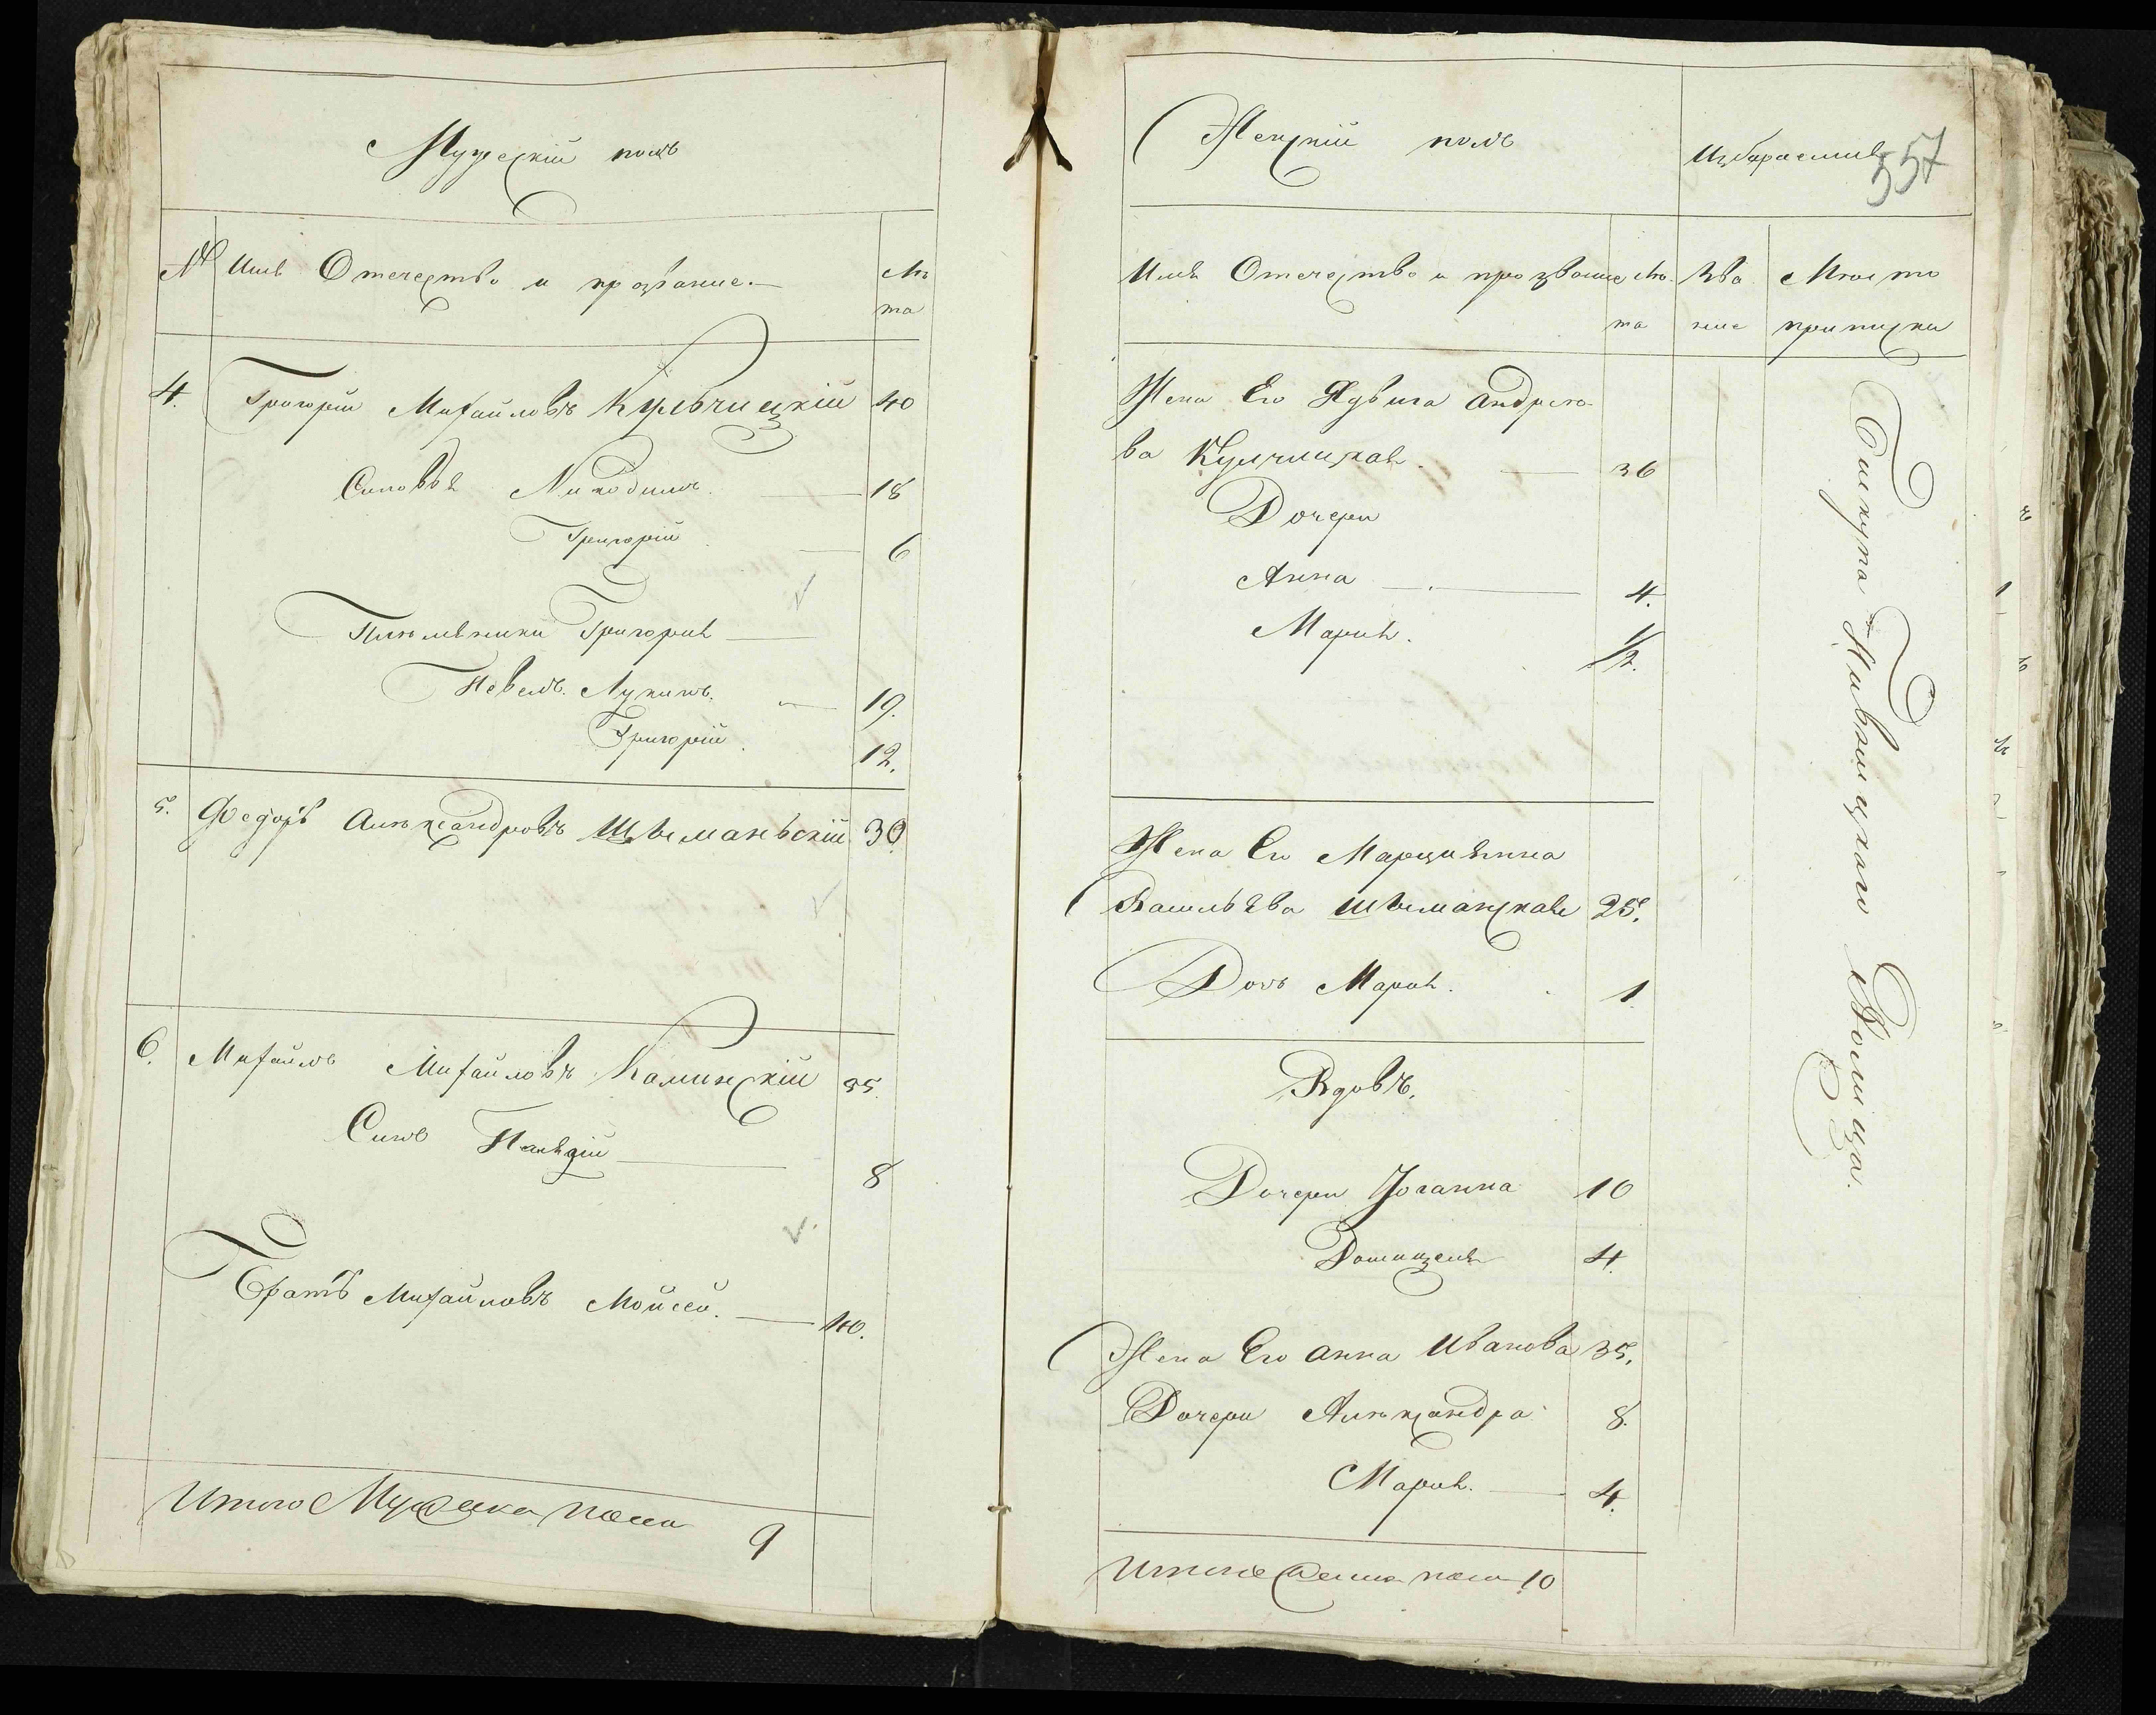 Мужескій полъ
№ Имя Отечество и прозваніе.
Лѣ
та
4. Григорій Михайловъ Кульчицкій 40
Сыновья Никодимъ. — 18
Григорій — 6
Племянники Григорія —
Павелъ. Лукинъ. — 19.
Григорій. 12.
5. Федоръ Александровъ Шыманьскій 30.
6. Михайлъ Михайловъ Каминскій 35.
Сынъ — 8
Братъ Михайловъ Мойсей. — 40.
Итого Мужеска пола 9
Женскій полъ
557
Имя Отечество и прозваніе Лѣ
та
Зва
ніе
Мѣсто
приписки
Жена Его Ядвига Андрее
ва Кульчицкая. — 36
Дочери
Анна — 4.
Марія. 1/2.
Жена Его Марціянна
Васильева Шыманская 25.
Дочь Марія. 1.
Вдовъ.
Дочери Іоганна 10
Доминцеля 4.
Жена Его Анна Иванова 35.
Дочери Александра 8.
Марія. — 4.
Итого женска пола 10